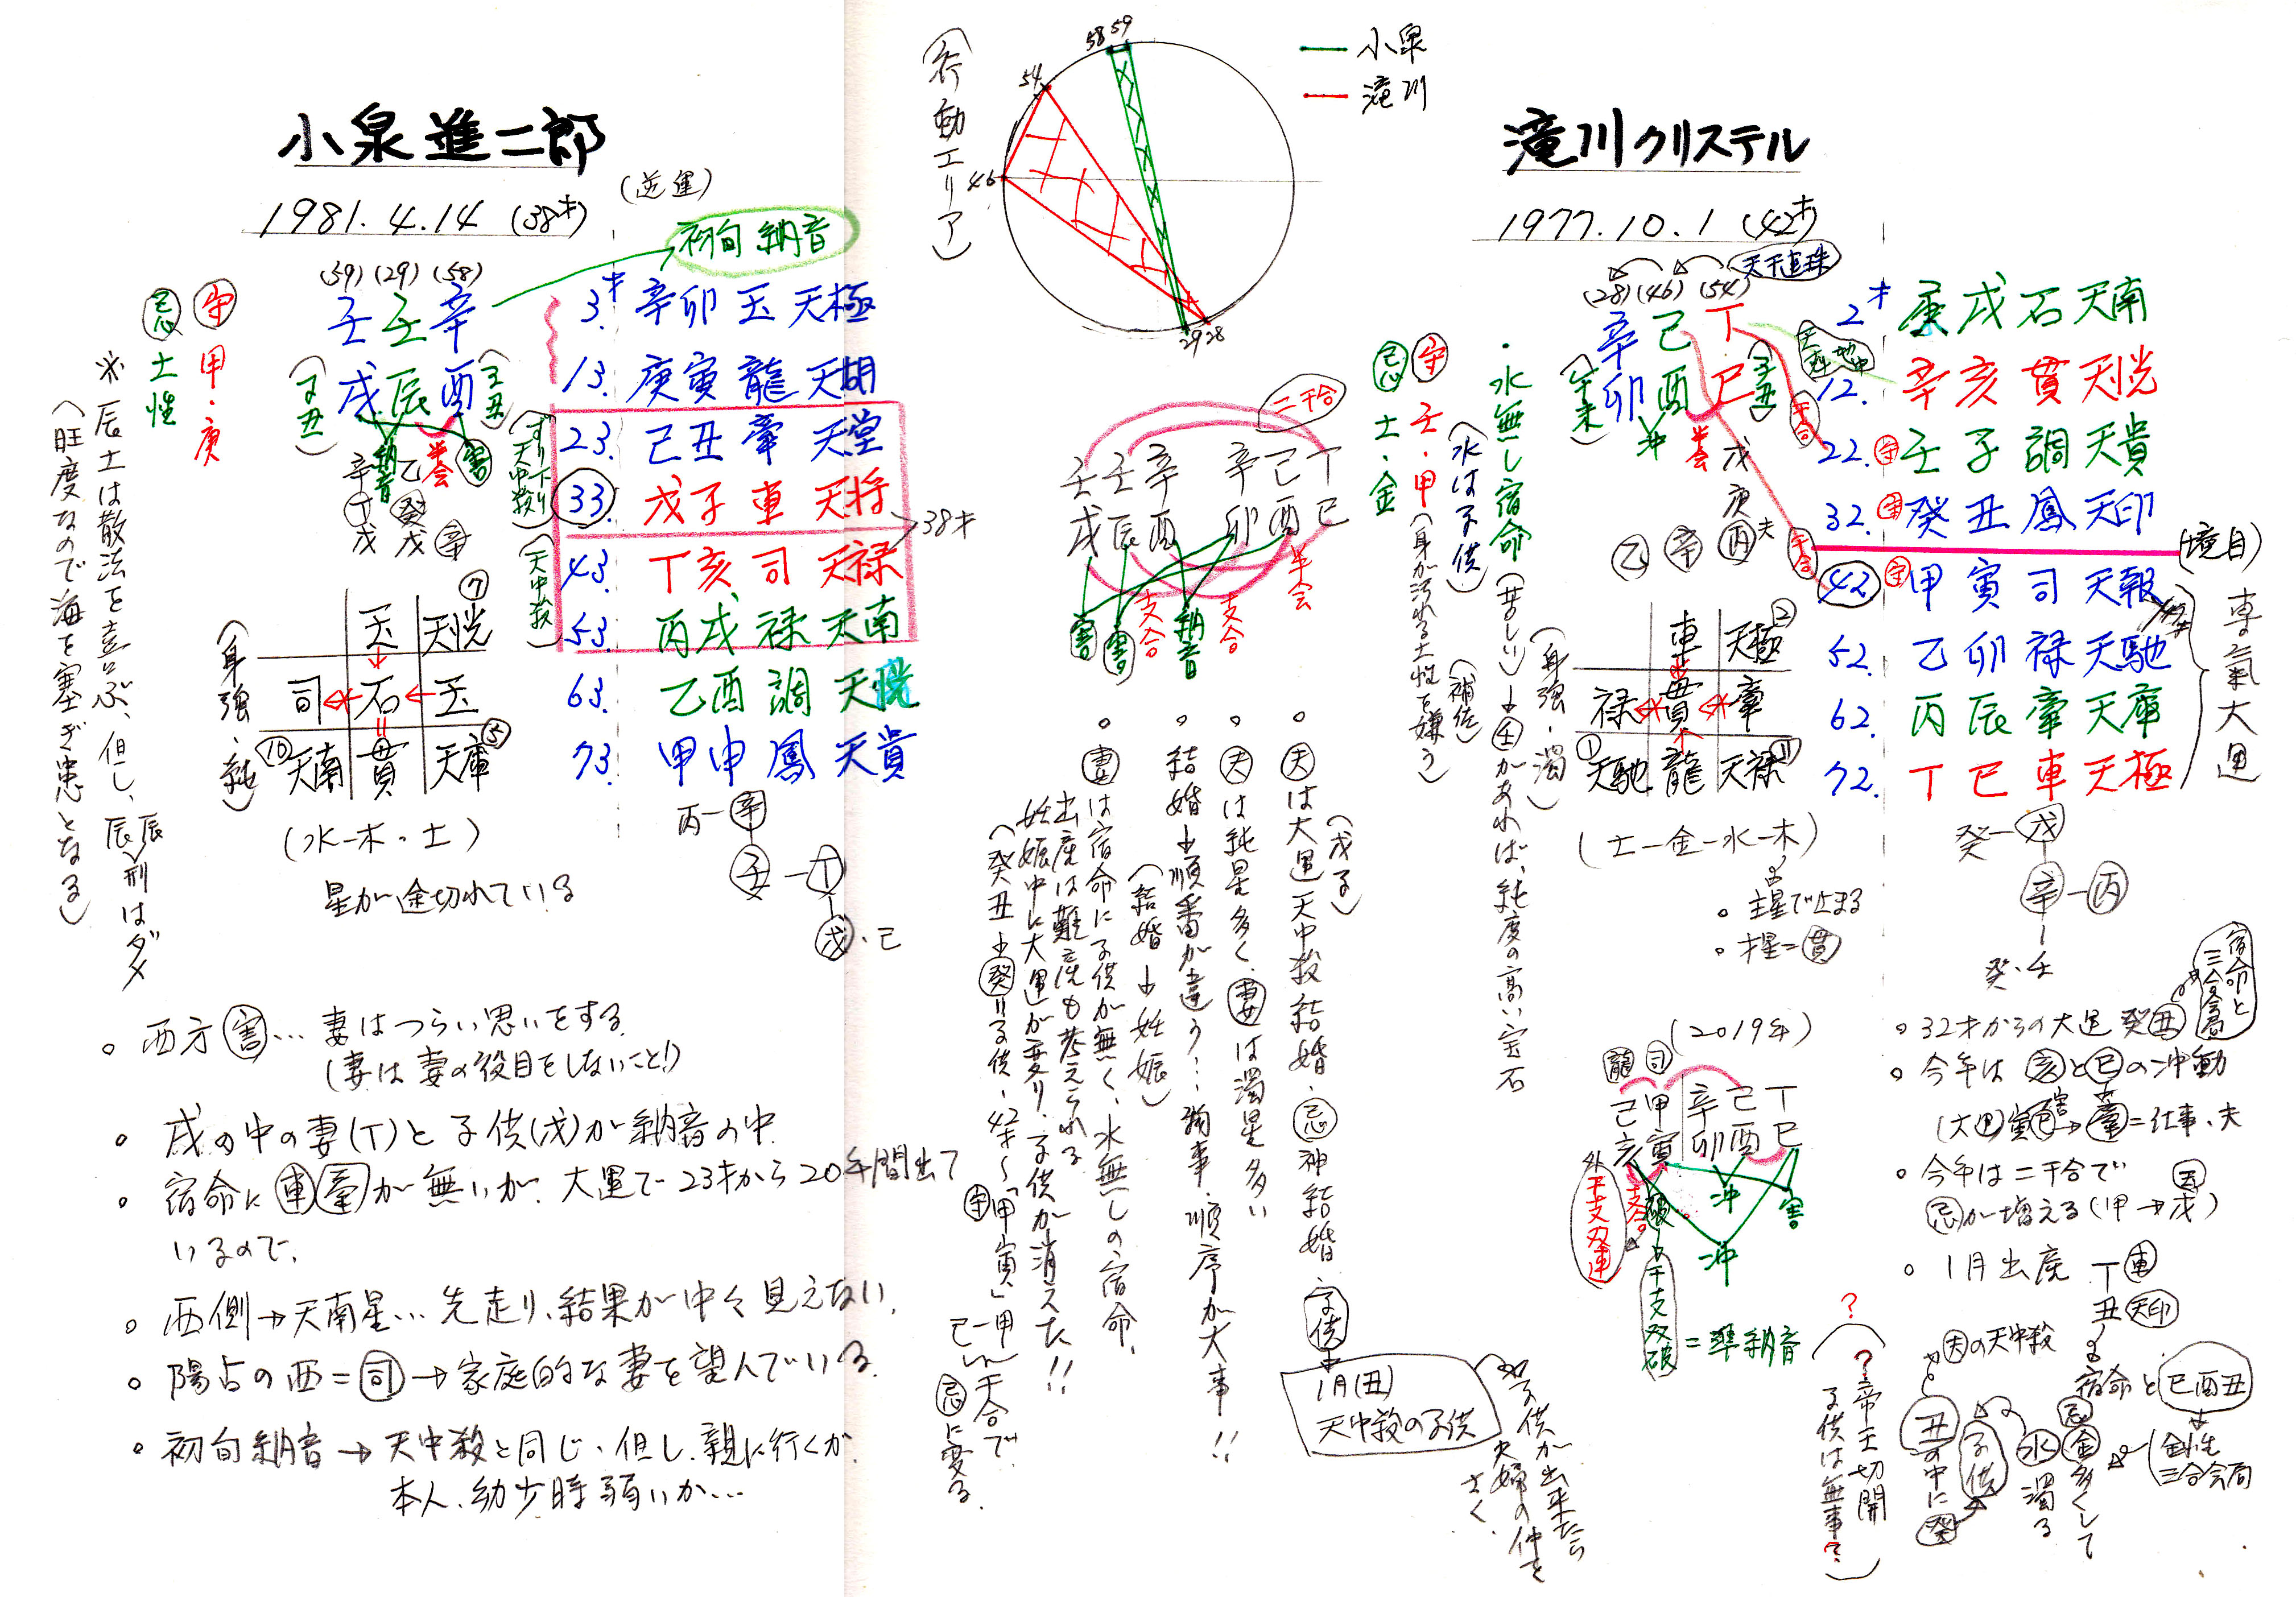 小泉進二郎
1981.4.14 (38才)
(逆運)
初旬納音
(59) (29) (58)
壬 壬 辛
戌 辰 酉
(子丑)
(子丑)
納音
半会
害
辛 乙
丁 癸
戊 戊 辛
守 甲・庚
忌 土性
※辰土は散法を喜ぶ、但し、辰辰刑はダメ
(旺度なので海を塞ぎ患となる)
3才. 辛卯 玉 天極
13. 庚寅 龍 天胡
23. 己丑 牽 天堂
33. 戊子 車 天将
43. 丁亥 司 天禄
53. 丙戌 禄 天南
63. 乙酉 調 天恍
73. 甲申 鳳 天貴
(すべり下り天中殺)
(天中殺)
38才
(身強・純)
玉 天恍 ⑦
司 石 玉
⑩ 天南 貫 天庫 ⑤
(水−木・土)
星が途切れている
丙−辛
壬−丁
戊・己
。西方 害… 妻はつらい思いをする.
(妻は妻の役目をしないこと!)
。戌の中の妻(丁)と子供(戊)が納音の中.
。宿命に車牽が無いが、大運で23才から20年間出て
いるので.
。西側→天南星… 先走り、結果が中々見えない.
。陽占の西=司→家庭的な妻を望んでいる.
。初旬納音→天中殺と同じ、但し、親に行くが.
本人、幼少時弱いか…
(行動エリア)
58 59
54
46
29 28
小泉
滝川
二干合
壬 壬 辛 辛 己 丁
戌 辰 酉 卯 酉 巳
半会
害
害
支合
納音
支合
。夫は大運天中殺結婚・忌神結婚
(戊子)
子供
1月(丑)
天中殺の子供
子供が出来たら
夫婦の仲を
さく.
。夫は純星多く、妻は濁星多い
。結婚→順番が違う…物事、順序が大事!!
(結婚→妊娠)
。妻は宿命に子供が無く、水無しの宿命.
出産は難産も考えられる
妊娠中に大運が変り、子供が消えた!!
(癸丑→癸は子供・42才〜「甲寅」甲
己−甲 干合で.
忌に変る.
滝川クリステル
1977.10.1 (42才)
天干連珠
(28) (46) (54)
辛 己 丁
卯 酉 巳
(午未)
(子丑)
冲
半会
戊
庚
乙 辛 丙 夫
干合
干合
守 壬・甲(身が汚れる土性を嫌う)
(水は子供) (補佐)
忌 土・金
・水無し宿命(苦しい)→壬があれば、純度の高い宝石
2才. 庚戌 石 天南
12. 辛亥 貫 天恍
22. 守 壬子 調 天貴
32. 守 癸丑 鳳 天印
(境目)
42. 守 甲寅 司 天報
52. 乙卯 禄 天馳
62. 丙辰 牽 天庫
72. 丁巳 車 天極
専氣大運
(身強・濁)
車 天極 ②
禄 貫 牽
① 天馳 龍 天禄 ⑪
(土−金−水−木)
。主星で止まる
。才星=貫
癸−戊
辛−丙
癸・壬
(2019年)
龍 司
己 甲 辛 己 丁
亥 寅 卯 酉 巳
支合
破
冲
害
冲
外干支双連
干支双破=準納音
。32才からの大運 癸丑
宿命と
三合会局
。今年は 亥と巳の冲動
(大運)寅 害 巳→牽=仕事、夫
。今年は二干合で
忌が増える(甲→戊)
。1月出産 丁 車
丑 天印
宿命と 巳酉丑
金性
三合会局
忌 金多くして
水 濁る
子供
夫の天中殺
丑の中に
癸
?
(?帝王切開
子供は無事?)